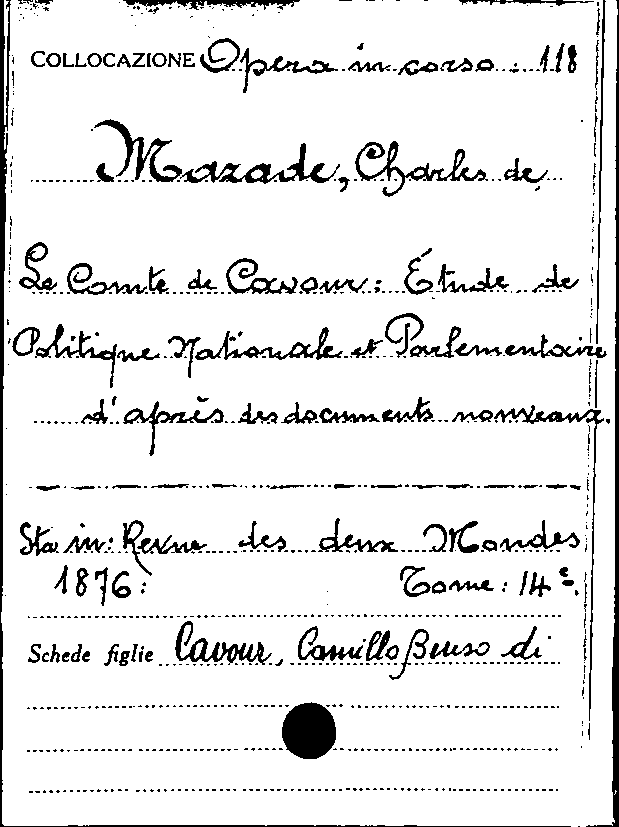 COLLOCAZIONE Opera in corso : 118
Mazade, Charles de
Le Comte de Cavour : Étude de
Politique Nationale et Parlementaire
d'après des documents nouveaux.
Sta in: Revue des deux Mondes
1876: Tome: 14e.
Schede figlie Cavour, Camillo Benso di